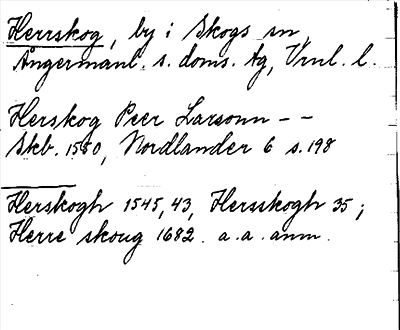 Herrskog, by i Skogs sn,
Ångermanl. s. doms. tg, Vrnl. l.
Herskog Peer Larsonn - -
Skb. 1550, Nordlander 6 s. 198
Herskogh 1545, 43, Hersskogh 35;
Herre skoug 1682. a. a. anm.